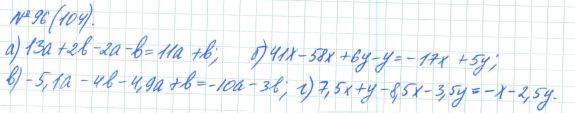 № 96 (104).
а) 13a + 2b - 2a - b = 11a + b; б) 41x - 58x + 6y - y = -17x + 5y;
в) -5,1a - 4b - 4,9a + b = -10a - 3b; г) 7,5x + y - 8,5x - 3,5y = -x - 2,5y.